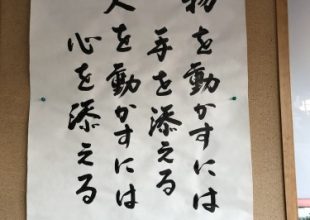 物を動かすには
手を添える
人を動かすには
心を添える